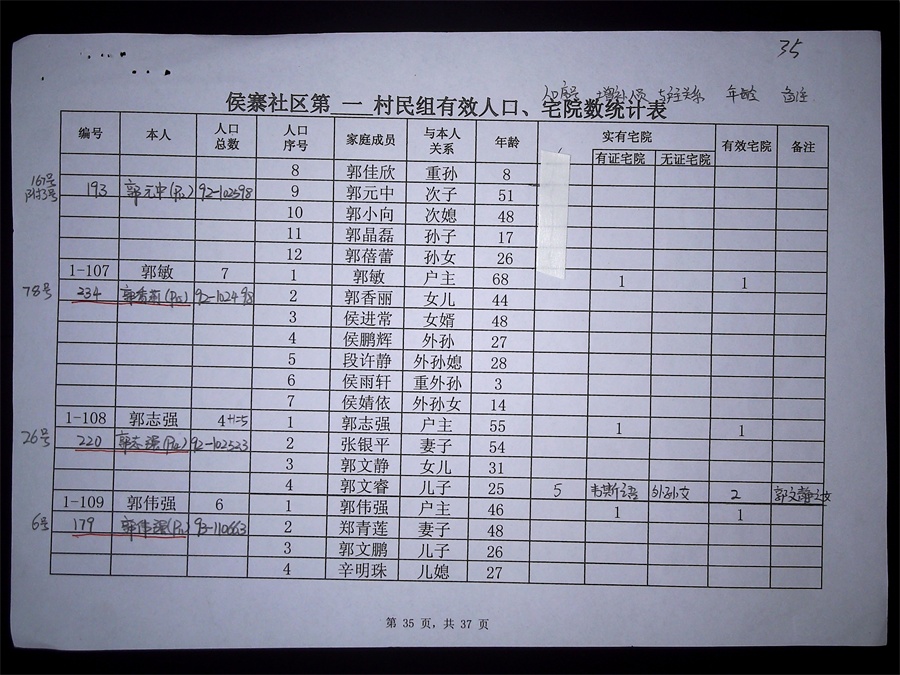 35
人口序号 增补人员 与户主关系 年龄 备注
侯寨社区第 一 村民组有效人口、宅院数统计表
编号 本人 人口总数 人口序号 家庭成员 与本人关系 年龄 实有宅院 有效宅院 备注
有证宅院 无证宅院
8 郭佳欣 重孙 8
167号附3号 193 郭元中 92-102598 9 郭元中 次子 51
10 郭小向 次媳 48
11 郭晶磊 孙子 17
12 郭蓓蕾 孙女 26
1-107 郭敏 7 1 郭敏 户主 68 1 1
78号 234 郭香丽 92-102498 2 郭香丽 女儿 44
3 侯进常 女婿 48
4 侯鹏辉 外孙 27
5 段许静 外孙媳 28
6 侯雨轩 重外孙 3
7 侯婧依 外孙女 14
1-108 郭志强 4+1=5 1 郭志强 户主 55 1 1
26号 220 郭志强 92-102523 2 张银平 妻子 54
3 郭文静 女儿 31
4 郭文睿 儿子 25 5 韦斯语 外孙女 2 郭文静之女
1-109 郭伟强 6 1 郭伟强 户主 46 1 1
6号 179 郭伟强 93-110663 2 郑青莲 妻子 48
3 郭文鹏 儿子 26
4 辛明珠 儿媳 27
第 35 页，共 37 页